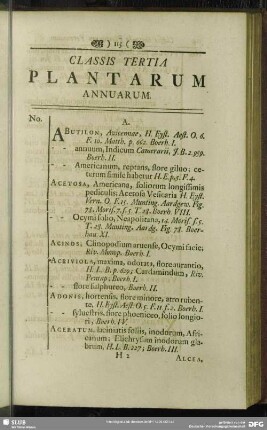 ) 115 (
CLASSIS TERTIA
PLANTARUM
ANNUARUM.
No. A.
ABUTILON, Avicennae, H. Eyst. Aest. O. 6.
F. 10. Matth. p. 662. Boerh. I.
- annuum, Indicum Camerarii. J. B. 2. 959.
Boerh. II.
- - Americanum, reptans, flore giluo; ce-
terum simile habetur H. E. p. 5. F. 4.
ACETOSA, Americana, foliorum longissimis
pediculis; Acetosa Vesicaria H. Eyst.
Vern. O. F. 15. Munting. Aardgew. Fig.
73. Morif. 7. f. 5. T. 28. Boerh. VIII.
- - Ocymi folio, Neapolitana, 14. Morif. f. 5.
T. 28. Munting. Aardg. Fig. 78. Boer-
hau XI.
ACINOS; Clinopodium aruense, Ocymi facie;
Riv. Monop. Boerh. I.
ACRIVIOLA, maxima, odorata, flore aurantio,
H. L. B. p. 629; Cardamindum, Riv.
Pentap. Boerh. I.
- - flore sulphureo, Boerh. II.
ADONIS, hortensis, flore minore, atro ruben-
te, H. Eyst. Aest. O. 7. F. 11. f. 2. Boerh. I.
- - syluestris, flore phoeniceo, folio longio-
ri, Boerh. IV.
AGERATUM, laciniatis foliis, inodorum, Afri-
canum; Elichrysum inodorum gla-
brum, H. L. B. 227; Boerh. III.
H 2 ALCEA,
SLUB
DFG